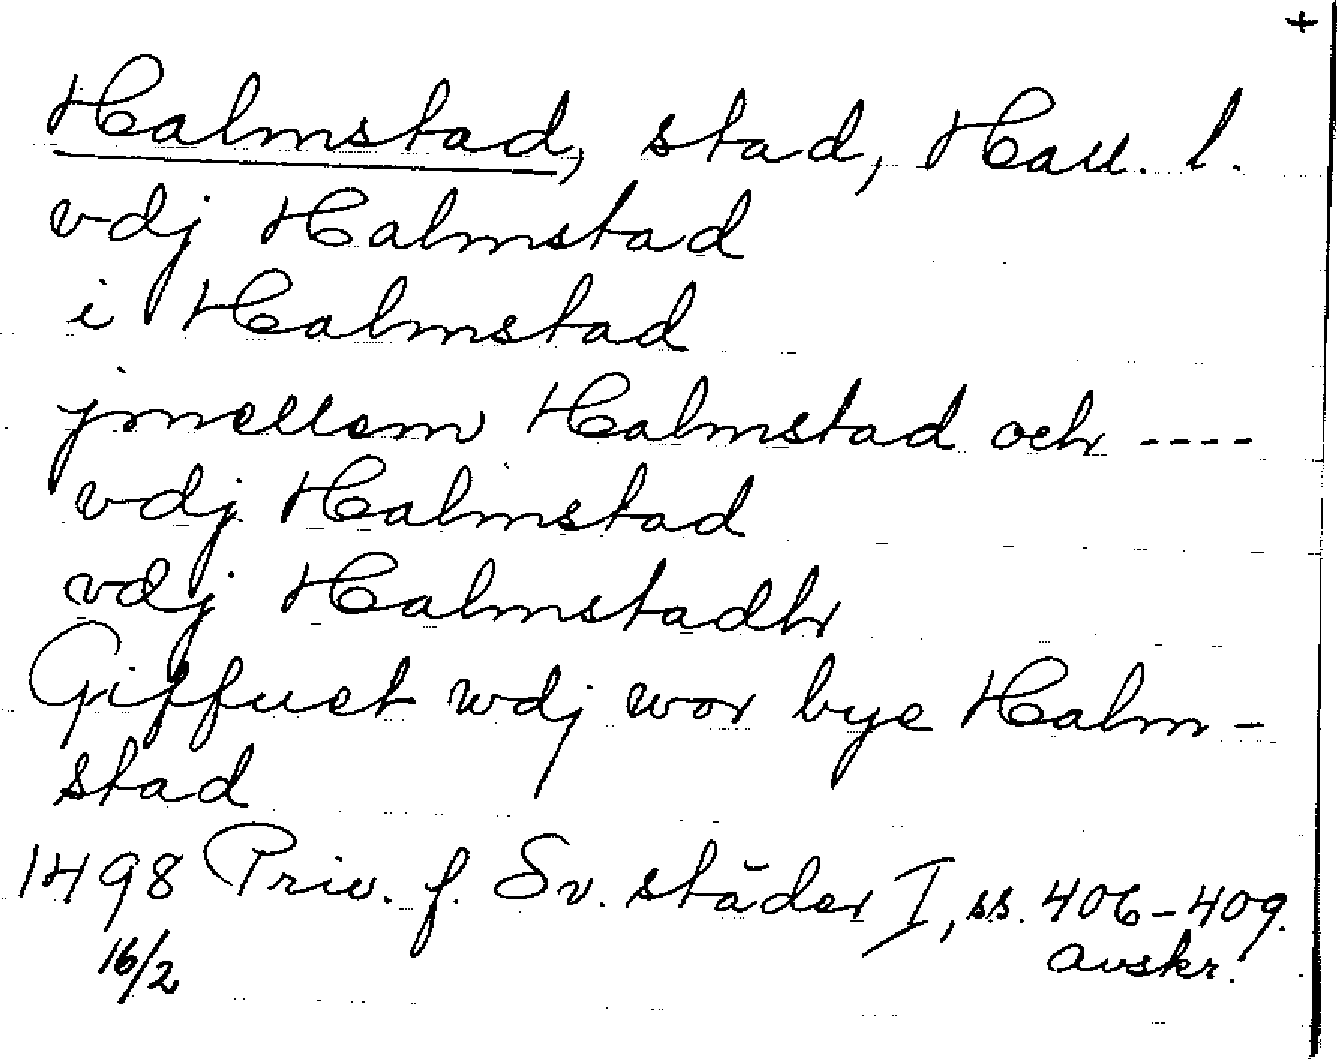 +
Halmstad, stad, Hall. l.
vdj Halmstad
i Halmstad
jmellem Halmstad och ----
vdj Halmstad
vdj Halmstadh
Giffuet wdj wor bye Halm-
stad
1498 Priv. f. Sv. städer I, ss. 406-409.
16/2 avskr.